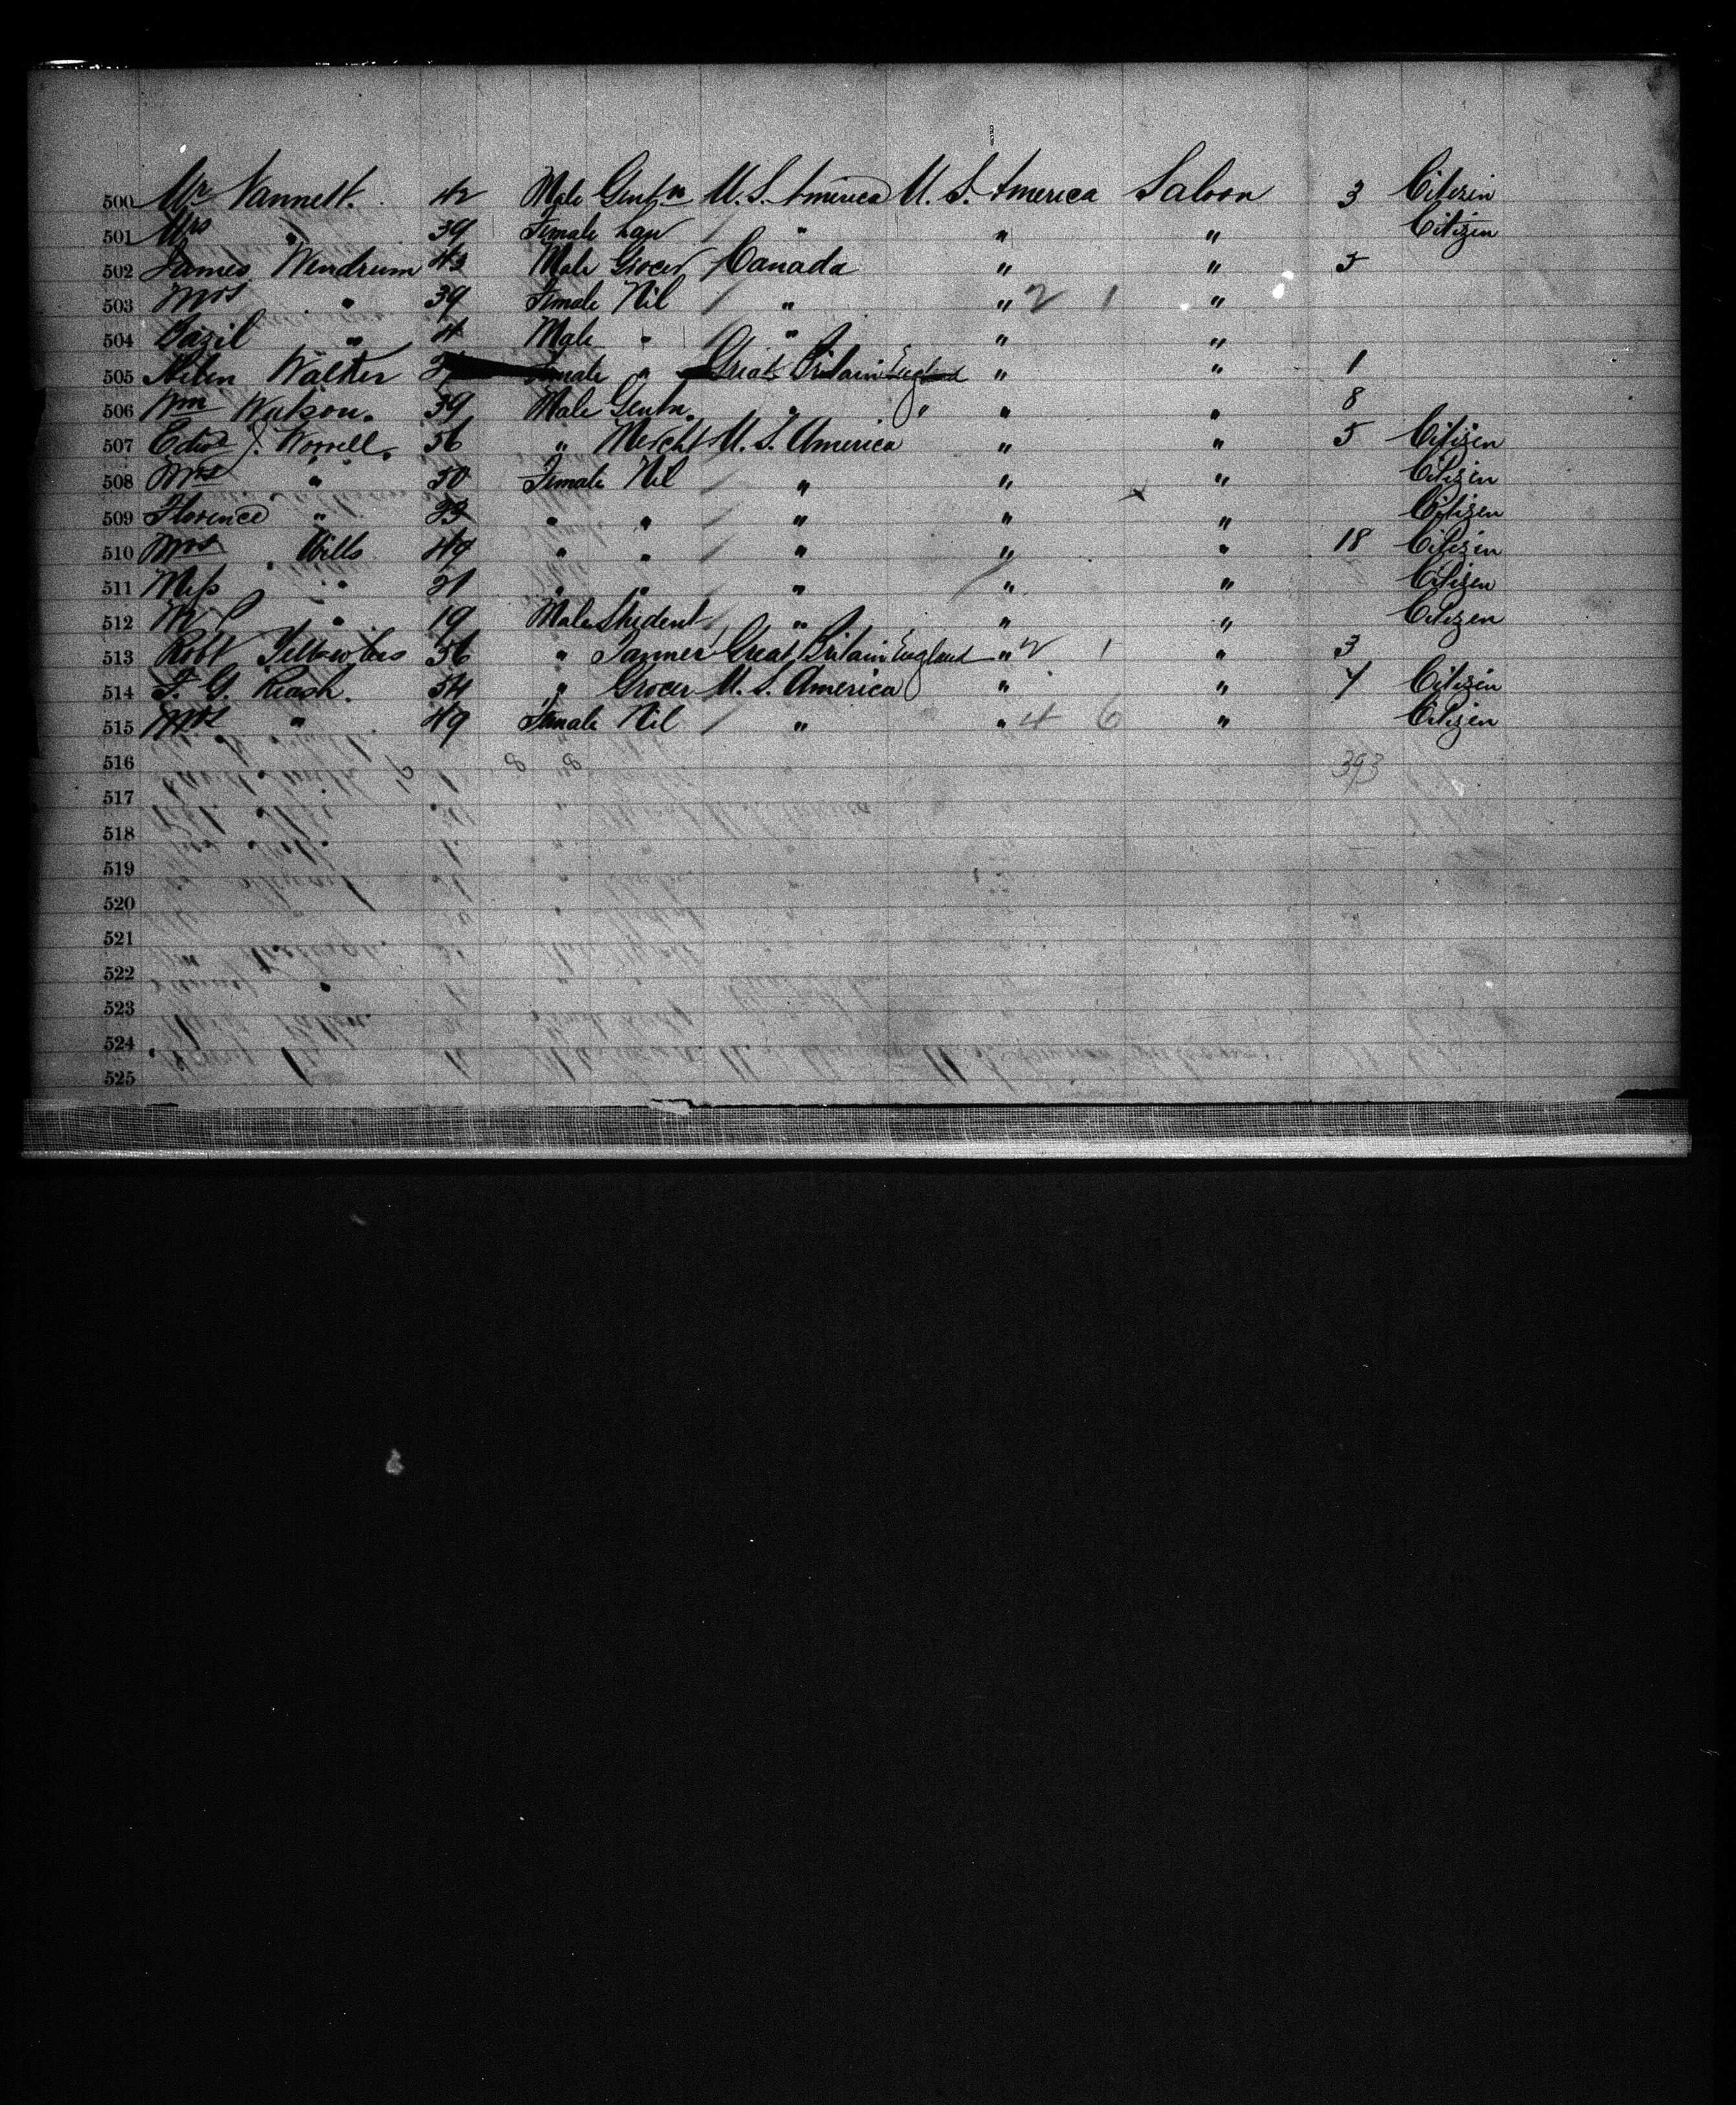 500 Mr Vannett. 42 Male Gentn U. S. America U. S. America Saloon 3 Citizen
501 Mrs " 39 Female " " " Citizen
502 James Wendrum 43 Male Grocer Canada " " 5
503 Mrs " 39 Female Nil " " 2 1 "
504 Bazil " 4 Male " " " "
505 Helen Walker Female " Great Britain England " " 1
506 Wm Watson. 39 Male Gentn. " " " " 8
507 Edwd J. Worrell. 56 " Mercht U. S. America " " 5 Citizen
508 Mrs " 50 Female Nil " " " Citizen
509 Florence " 23 " " " " " Citizen
510 Mrs Wills 49 " " " " " 18 Citizen
511 Miss " 21 " " " " " Citizen
512 " 19 Male Student " " " Citizen
513 Robt 56 " Tanner Great Britain England " 2 1 " 3
514 F. G. Reach. 54 " Grocer U. S. America " " 4 Citizen
515 Mrs " 49 Female Nil " " 4 6 " Citizen
516 8 8 393
517
518
519
520
521
522
523
524
525